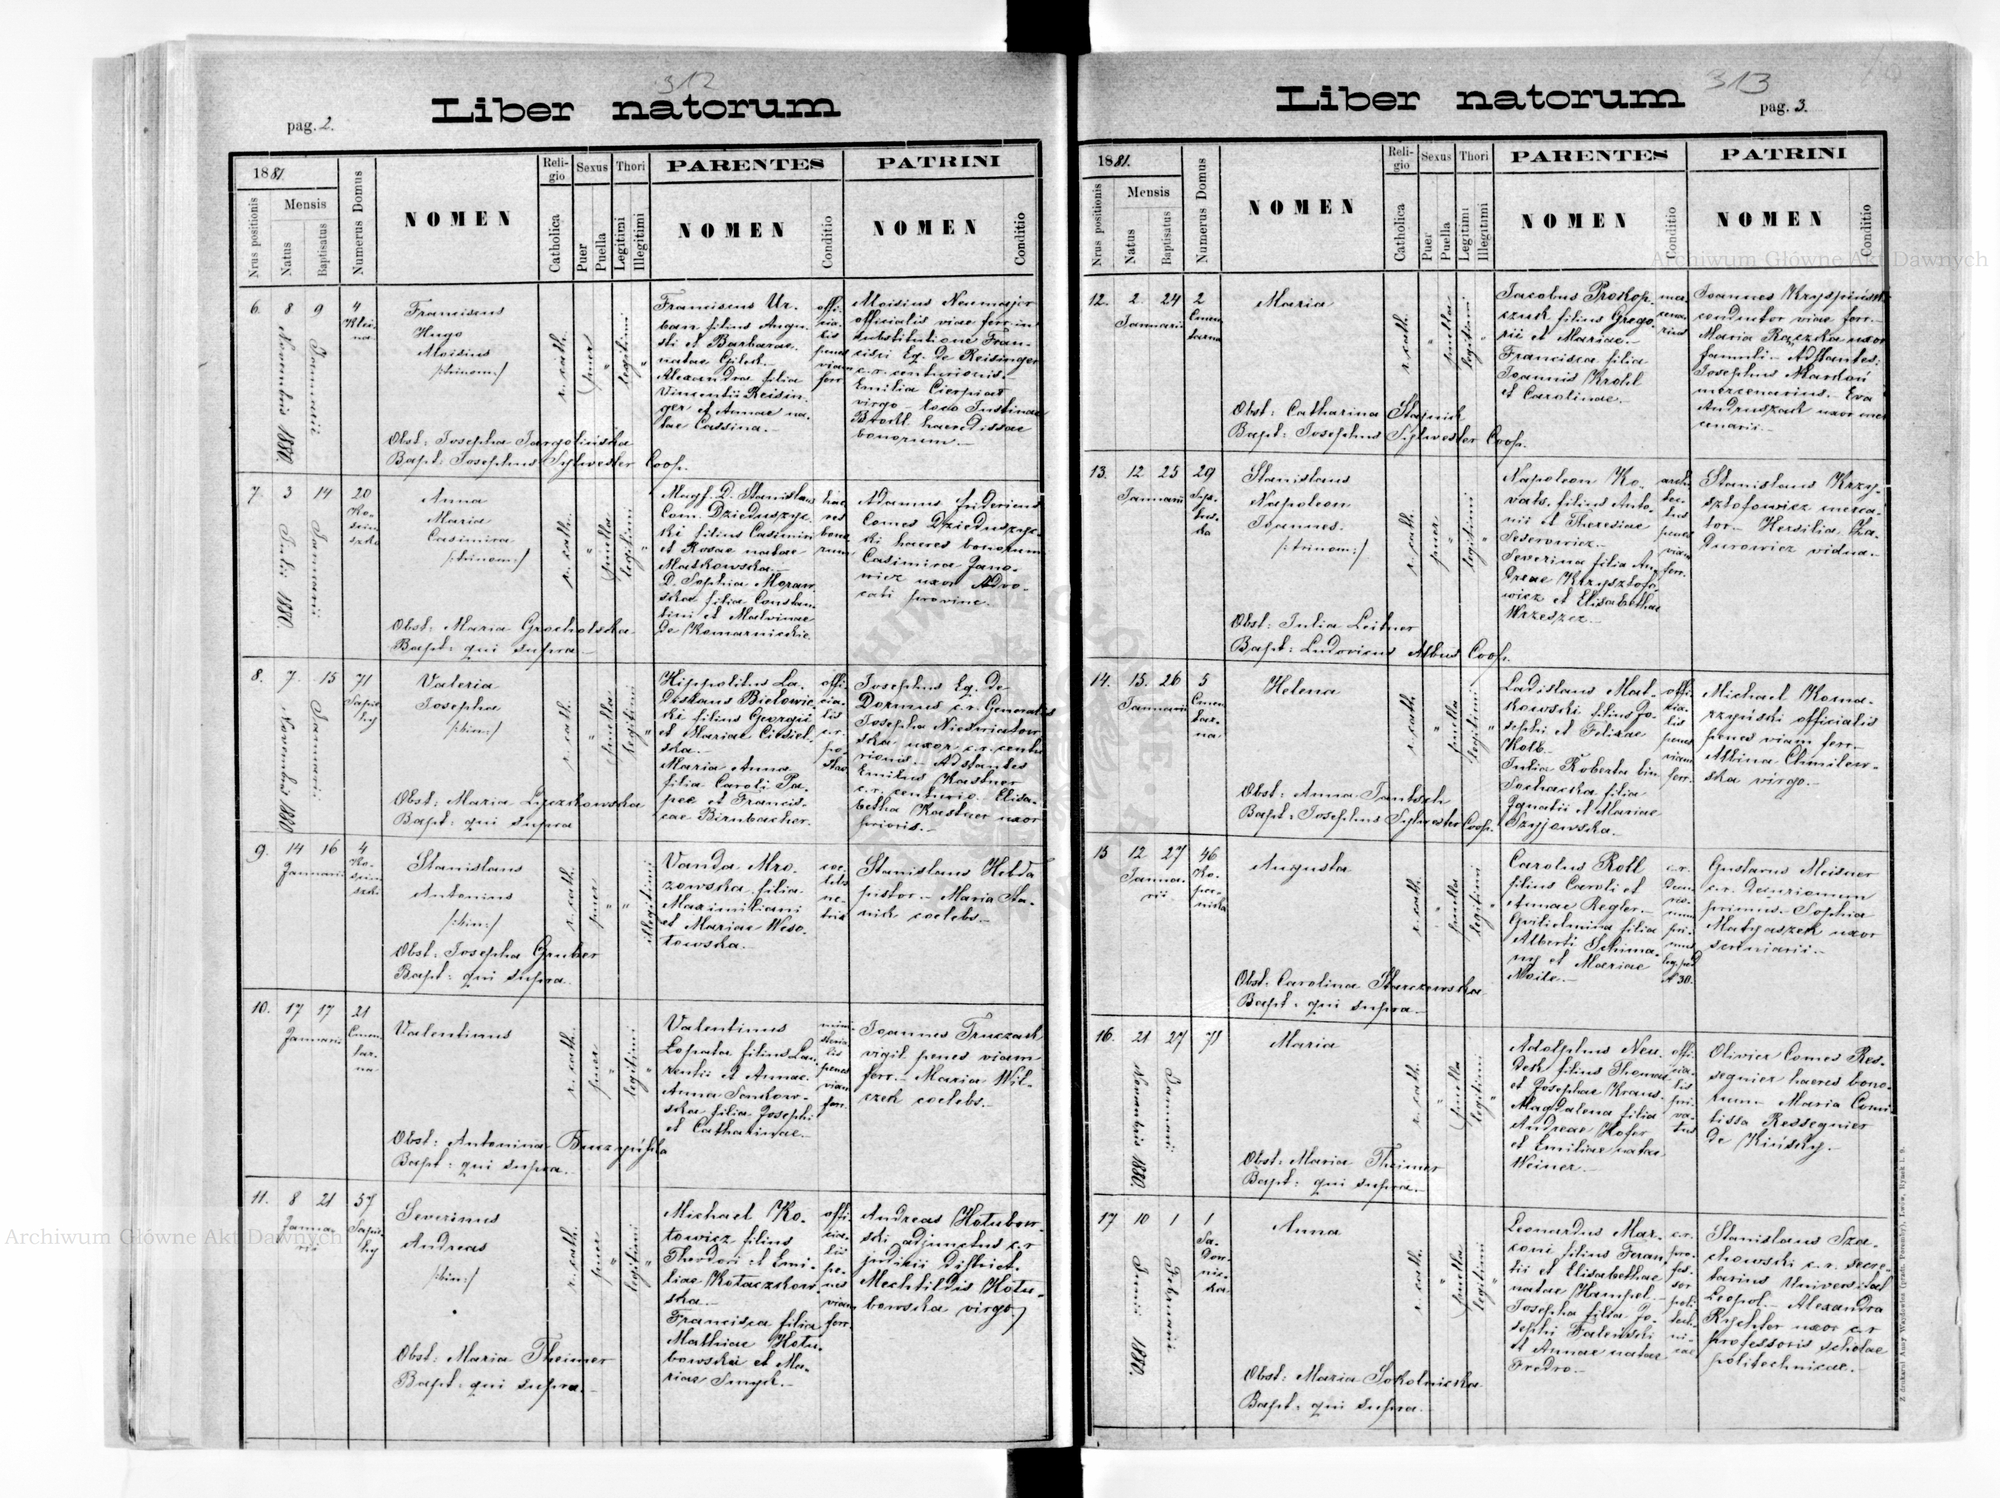 312
Liber natorum
pag. 2.
1881.
Nrus positionis
Mensis
Natus
Baptisatus
Numerus Domus
NOMEN
Reli-
gio
Catholica
Sexus
Puer
Puella
Thori
Legitimi
Illegitimi
PARENTES
NOMEN
Conditio
PATRINI
NOMEN
Conditio
6. 8 9 4
Novembris 1880.
Januarii
Franciscus
Hugo
Aloisius
/:trinom:/
Obst: Josepha Jargolińska
Bapt: Josephus Sylwester Coop.
r. cath.
puer "
legitimi "
Franciscus Ur-
ban filius Augu-
sti et Barbarae
natae Gilek.
Alexandra filia
Vincentii Reisin-
ger et Annae na-
tae Cassina.
offi-
cia-
lis
penes
viam
ferr.
Aloisius Neumajer
officialis viae ferr. in
substitutione Fran-
cisci Eq. de Reisinger
c.r. centurionis.
Emilia Cierpiat
virgo loco Justinae
haeredissae
bonorum.
7. 3 14 20
Julii 1880.
Januarii
Ko-
sciu
szko
Anna
Maria
Casimira
/:trinom:/
Obst: Maria Grocholska
Bapt: qui supra
r. cath.
" puella
legitimi "
Magf. D. Stanislaus
Com. Dzieduszyc-
ki filius Casimiri
et Rosae natae
Matkowska
D. Sophia Moraw-
ska filia Constan-
tini et Malvinae
de Komarnickie
hae-
res
bono
rum
Adamus Fridericus
Comes Dzieduszyc-
ki haeres bonorum
Casimira Jano-
wicz uxor Advo-
cati provinc.
8. 7. 15 71
Novembris 1880
Januarii
Sapie
hy
Valeria
Josepha
/:bin:/
Obst: Maria Lyczkowska
Bapt: qui supra
r. cath.
" puella
legitimi "
Hippolitus La-
dislaus Bielowic-
ki filius Georgii
et Mariae Ciesiel-
ska.
Maria Anna
filia Caroli Pa-
pee et Francis-
cae Birnbacher.
offi-
cia-
lis
c.r.
po-
stae
Josephus Eq. de
Dormus c.r. Generalis
Josepha Niesiviatow
ska uxor c.r. centu
rionis. Adstantes
Emilus Kastner
c.r. centurio. Elisa-
betha Kastner uxor
prioris.
9. 14 16 4
Januarii
Ko-
sciu
szki
Stanislaus
Antonius
/:bin:/
Obst: Josepha Gruber
Bapt: qui supra.
r. cath.
puer "
" illegitimi
Vanda Mro-
zowska filia
Maximiliani
et Mariae Weso-
łowska.
coe-
lebs
Stanislaus Hebda
pistor. Maria Sta-
nik coelebs.
10. 17 17 21
Januarii
Cmen
tar-
na
Valentinus
Obst: Antonina
Bapt: qui supra.
r. cath.
puer "
legitimi "
Valentinus
Łopata filius Lau-
rentii et Annae.
Anna Senkow-
ska filia Josephi
et Catharinae.
mini
steria
lis
penes
viam
ferr.
Joannes Truczak
vigil penes viam
ferr. Maria Wil-
czek coelebs.
11. 8 21 57
Janua
rii
Sapie-
hy
Severinus
Andreas
/:bin:/
Obst: Maria Theimer
Bapt: qui supra.
r. cath.
puer "
legitimi "
Michael Ko-
towicz filius
Theodori et Emi-
liae Kotaczkow-
ska.
Francisca filia
Mathiae Hołu-
bowski et Ma-
riae Smyk.
offi-
cia-
lis
pe-
nes
viam
ferr.
Andreas Hołubow-
ski adjunctus c.r.
judicii District.
Mechtildis Hołu-
bowska virgo
313
Liber natorum
pag. 3.
1881.
Nrus positionis
Mensis
Natus
Baptisatus
Numerus Domus
NOMEN
Reli-
gio
Catholica
Sexus
Puer
Puella
Thori
Legitimi
Illegitimi
PARENTES
NOMEN
Conditio
PATRINI
NOMEN
Conditio
12. 2. 24 2
Januarii
Cmen
tarna
Maria
Obst: Catharina Stapnik
Bapt: Josephus Sylwester Coop.
r. cath.
" puella
legitimi "
Jacobus Prokop-
czuk filius Grego-
rii et Mariae.
Francisca filia
Joannis Krohl
et Carolinae.
mer-
cena-
rius
Joannes Kryspiński
conductor viae ferr.
Maria Rączka uxor
famuli. Adstantes:
Josephus Mardoń
mercenarius. Eva
Andruszak uxor mer
cenarii.
13. 12 25 29
Januarii
Stanislaus
Napoleon
Joannes.
/:trinom:/
Obst: Julia Leitner
Bapt: Ludovicus Albus Coop.
r. cath.
puer "
legitimi "
Napoleon Ko-
vats filius Anto-
nii et Theresiae
Seserowicz.
Severina filia An-
dreae Krzysztofo-
wicz et Elisabethae
Wrzeszcz.
archi-
tec-
tus
penes
viam
ferr.
Stanislaus Krzy-
sztofowicz merca-
tor. Hersilia Za-
durowicz vidua.
14. 15. 26 5
Januarii
Cmen
tar-
na
Helena
Obst: Anna Jantsch
Bapt: Josephus Sylwester Coop.
r. cath.
" puella
legitimi "
Ladislaus Mal-
kowski filius Jo-
sephi et Felixae
Kolb.
Julia Roberta bin
Sochacka filia
Ignatii et Mariae
Szyjowska.
offi-
cia-
lis
penes
viam
ferr.
Michael Koma-
rzyński officialis
penes viam ferr.
Albina Chmielew-
ska virgo.
15 12 27 46
Janua-
rii
Ko-
per-
nika
Augusta
Obst: Carolina Starczewska
Bapt: qui supra.
r. cath.
" puella
legitimi "
Carolus Roll
filius Caroli et
Annae Regler.
Gvilielmina filia
Alberti Schima-
ny et Mariae
Noite.
c.r.
primus
N 30.
Gustavus Meisner
c.r. Decurionum
primus. Sophia
Matyaszek uxor
scriniarii.
16. 21 27 71
Novembris 1880.
Januarii
Maria
Obst: Maria Theimer
Bapt: qui supra.
r. cath.
" puella
legitimi "
Adolphus Neu-
dek filius Thomae
et Josephae Kraus.
Magdalena filia
Andreae Hofer
et Emiliae natae
Weiner.
offi-
cia-
lis
pri-
va-
tus
Olivier Comes Res-
seguier haeres bono
rum. Maria Comi-
tissa Resseguier
de Kińsky.
17 10 1 1
Junii 1880.
Februarii
Sa-
dow-
nic-
ka
Anna
Obst: Maria Sokolnicka
Bapt: qui supra.
r. cath.
" puella
legitimi "
Leonardus Mar-
coni filius Feran-
tii et Elisabethae
natae Hampel.
Josepha filia Jo-
sephi Faleński
et Annae natae
Fredro.
c.r.
pro-
fes-
sor
poli-
tech-
ni-
cae
Stanislaus Sza-
chowski c.r. secre-
tarius Universitat
Leopol. Alexandra
Rychter uxor c.r.
professoris scholae
politechnicae.
Z drukarni Anny Wajdowicz (przedt. Poremby), Lwów, Rynek l. 9.
Archiwum Główne Akt Dawnych
Archiwum Główne Akt Dawnych